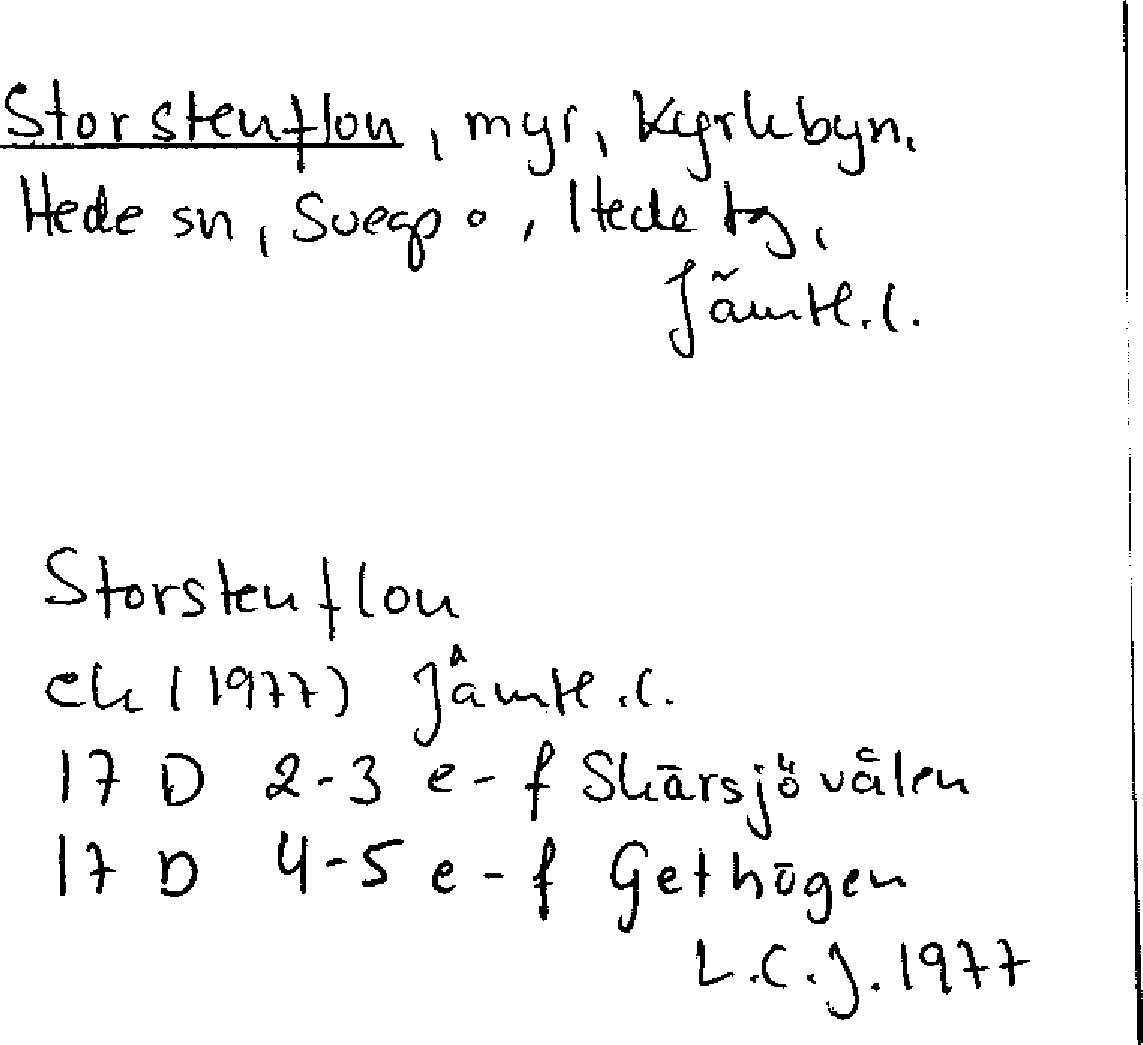 Storstenflon, myr, Kyrkbyn,
Hede sn, Svegs o, Hede tg,
Jämtl.l.
Storstenflon
ek (1977) Jämtl.l.
17 D 2-3 e-f Skärsjövålen
17 D 4-5 e-f Gethögen
L.C.J. 1977